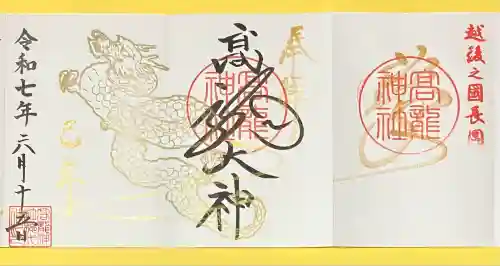 越後之國長岡
高龍神社
奉拝
高龍大神
高龍神社
令和七年 六月十五日